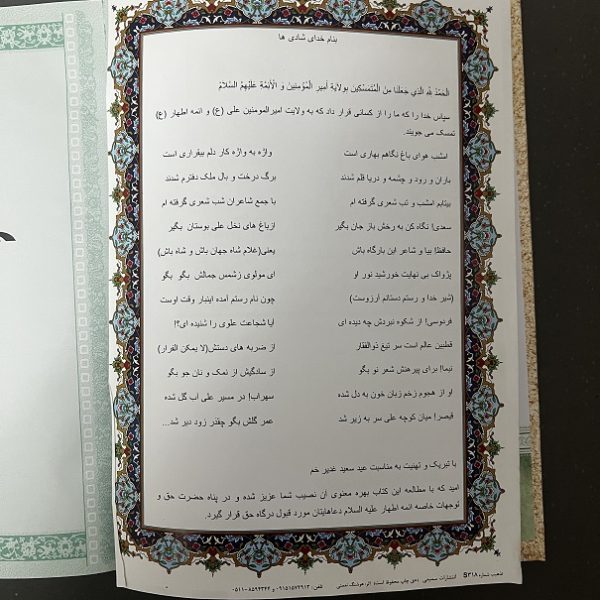 بنام خدای شادی ها
اَلحَمدُ لله الَّذي جَعَلَنا مِنَ المُتَمَسِّکينَ بِولايَةِ اَميرِ المُؤمِنينَ وَ الاَئِمَّةِ عَلَيهِمُ السَّلامُ
سپاس خدا را که ما را از کسانی قرار داد که به ولایت امیرالمومنین علی (ع) و ائمه اطهار (ع)
تمسک می جویند.
امشب هوای باغ نگاهم بهاری است واژه به واژه کار دلم بیقراری است
باران و رود و چشمه و دریا قلم شدند برگ درخت و بال ملک دفترم شدند
بیتابم امشب و تب شعری گرفته ام با جمع شاعران شب شعری گرفته ام
سعدی! نگاه کن به رخش باز جان بگیر ازباغ های نخل علی بوستان بگیر
حافظ! بیا و شاعر این بارگاه باش یعنی(غلام شاه جهان باش و شاه باش)
پژواک بی نهایت خورشید نور او ای مولوی زشمس جمالش بگو بگو
(شیر خدا و رستم دستانم آرزوست) چون نام رستم آمده اینبار وقت اوست
فردوسی! از شکوه نبردش چه دیده ای آیا شجاعت علوی را شنیده ای؟!
قطبین عالم است سر تیغ ذوالفقار از ضربه های دستش(لا یمکن الفرار)
نیما! برای پیرهنش شعر نو بگو از سادگیش از نمک و نان جو بگو
او از هجوم زخم زبان خون به دل شده سهراب! در مسیر علی آب گل شده
قیصر! میان کوچه علی سر به زیر شد عمر گلش بگو چقدر زود دیر شد...
با تبریک و تهنیت به مناسبت عید سعید غدیر خم
امید که با مطالعه این کتاب بهره معنوی آن نصیب شما عزیز شده و در پناه حضرت حق و
توجهات خاصه ائمه اطهار علیه السلام دعاهایتان مورد قبول درگاه حق قرار گیرد.
تذهیب شماره S۳۱۸ انتشارات (حق چاپ محفوظ است) اثر: هوشنگ تلفن: ۰۹۱۵۱۵۷۲۹۱۳ و ۸۵۹۴۳۴۴-۰۵۱۱